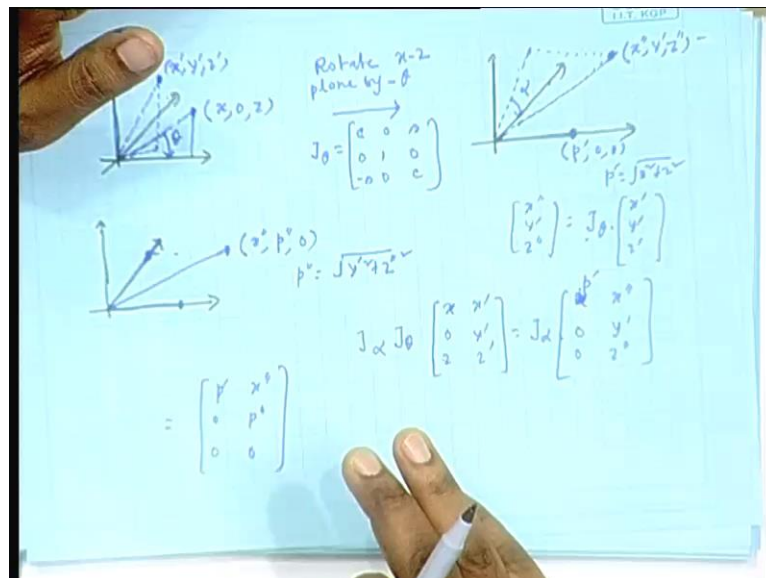 I.I.T. KGP
(x', y', z')
(x, 0, z)
θ
Rotate x-z
plane by -θ
J_θ = [c 0 s
0 1 0
-s 0 c]
(x'', y', z'')
α
(p', 0, 0)
p' = √x²+z²
[x'' y' z''] = J_θ · [x' y' z']
(x'', p'', 0)
p'' = √y'²+z''²
J_α J_θ [x x'
0 y'
z z'] = J_α · [p' x''
0 y'
0 z'']
= [p' x''
0 p''
0 0]